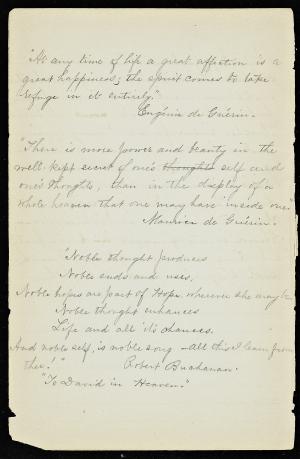 "At any time of life a great affection is a
great happiness; the spirit comes to take
refuge in it entirely."
Eugénie de Guérin.
"There is more power and beauty in the
well-kept secret of one's thoughts self and
one's thoughts, than in the display of a
whole heaven that one may have inside one."
Maurice de Guérin.
"Noble thought produces
Noble ends and uses,
Noble hopes are part of Hope wherever she may be.
Noble thought enhances
Life and all its chances,
And noble self, is noble song – all this I learn from
thee!" Robert Buchanan.
"To David in Heaven."